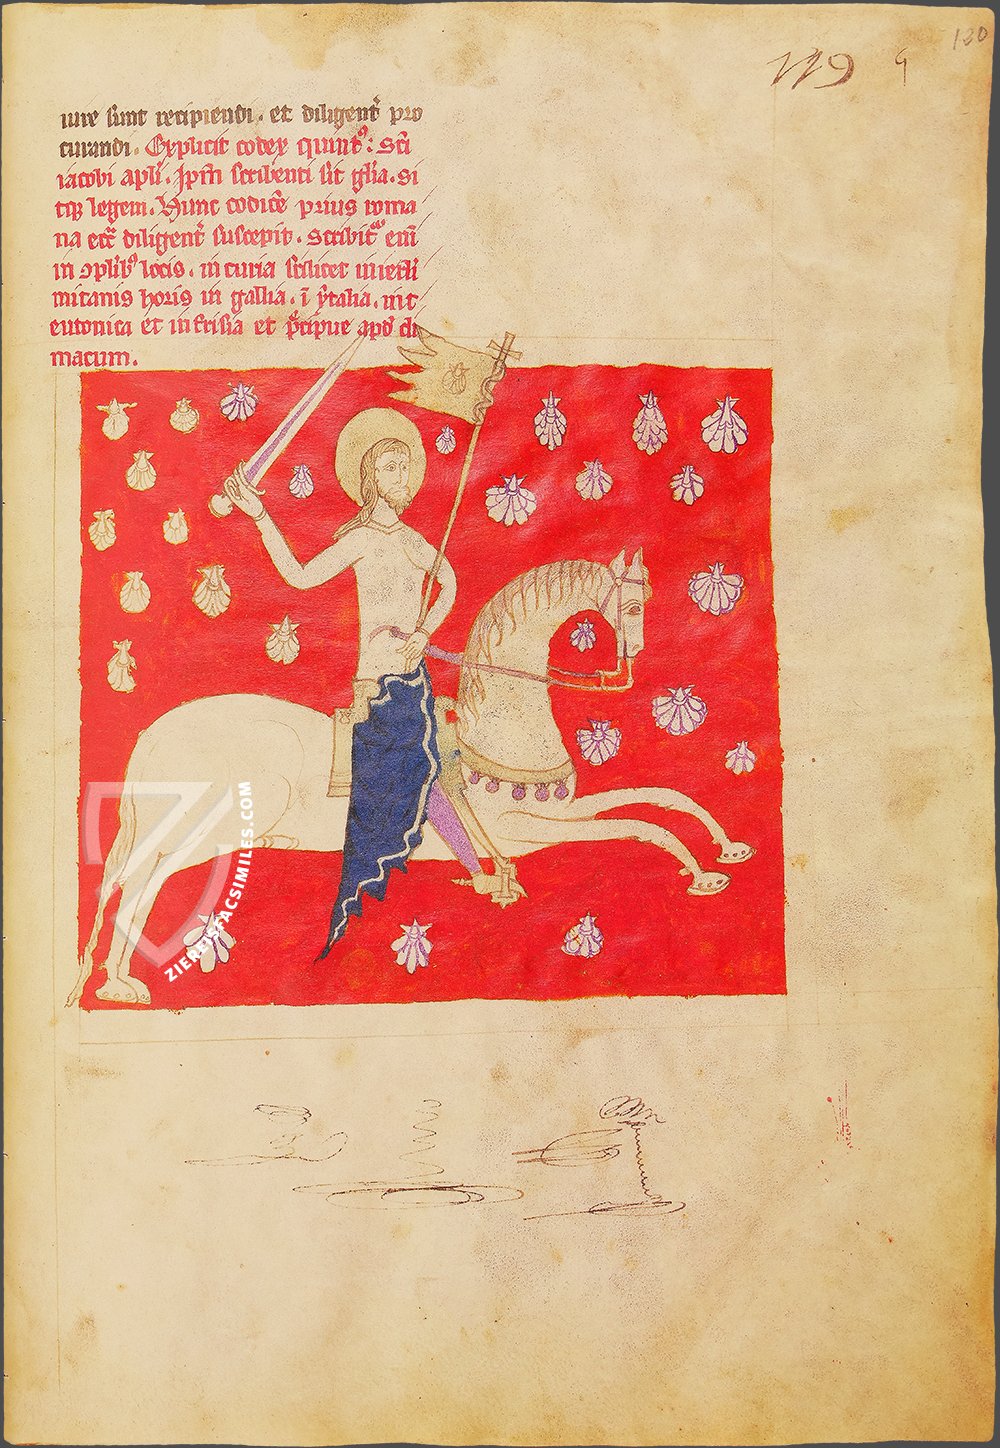 130
119
iure sunt recipiendi. et diligent̄ pro
curandi. Explicit codex quintꝰ: Sc̄i
iacobi apl̄i. Ipsū scribenti sit gl̄ia. si
tqꝫ legenti. Hunc codicē prius roma
na ecc̄ diligent̄ suscepit. Scribit᷑ eni᷑
in ꝯplibꝰ locis. in curia scilicet in ierl̄i
mitanis horis in gallia. ī ytalia. in t
eutonica et in frisia et p̄cipue apᵈ clu
niacum.
ZIEREISFACSIMILES.COM